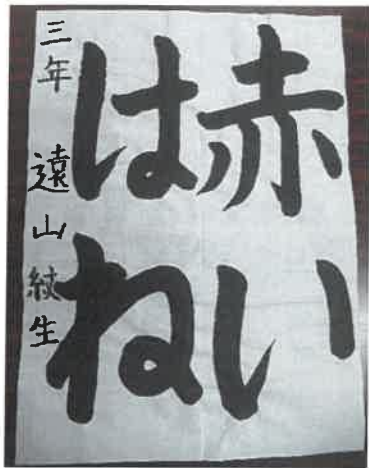 赤い
はね
三年 遠山紋生